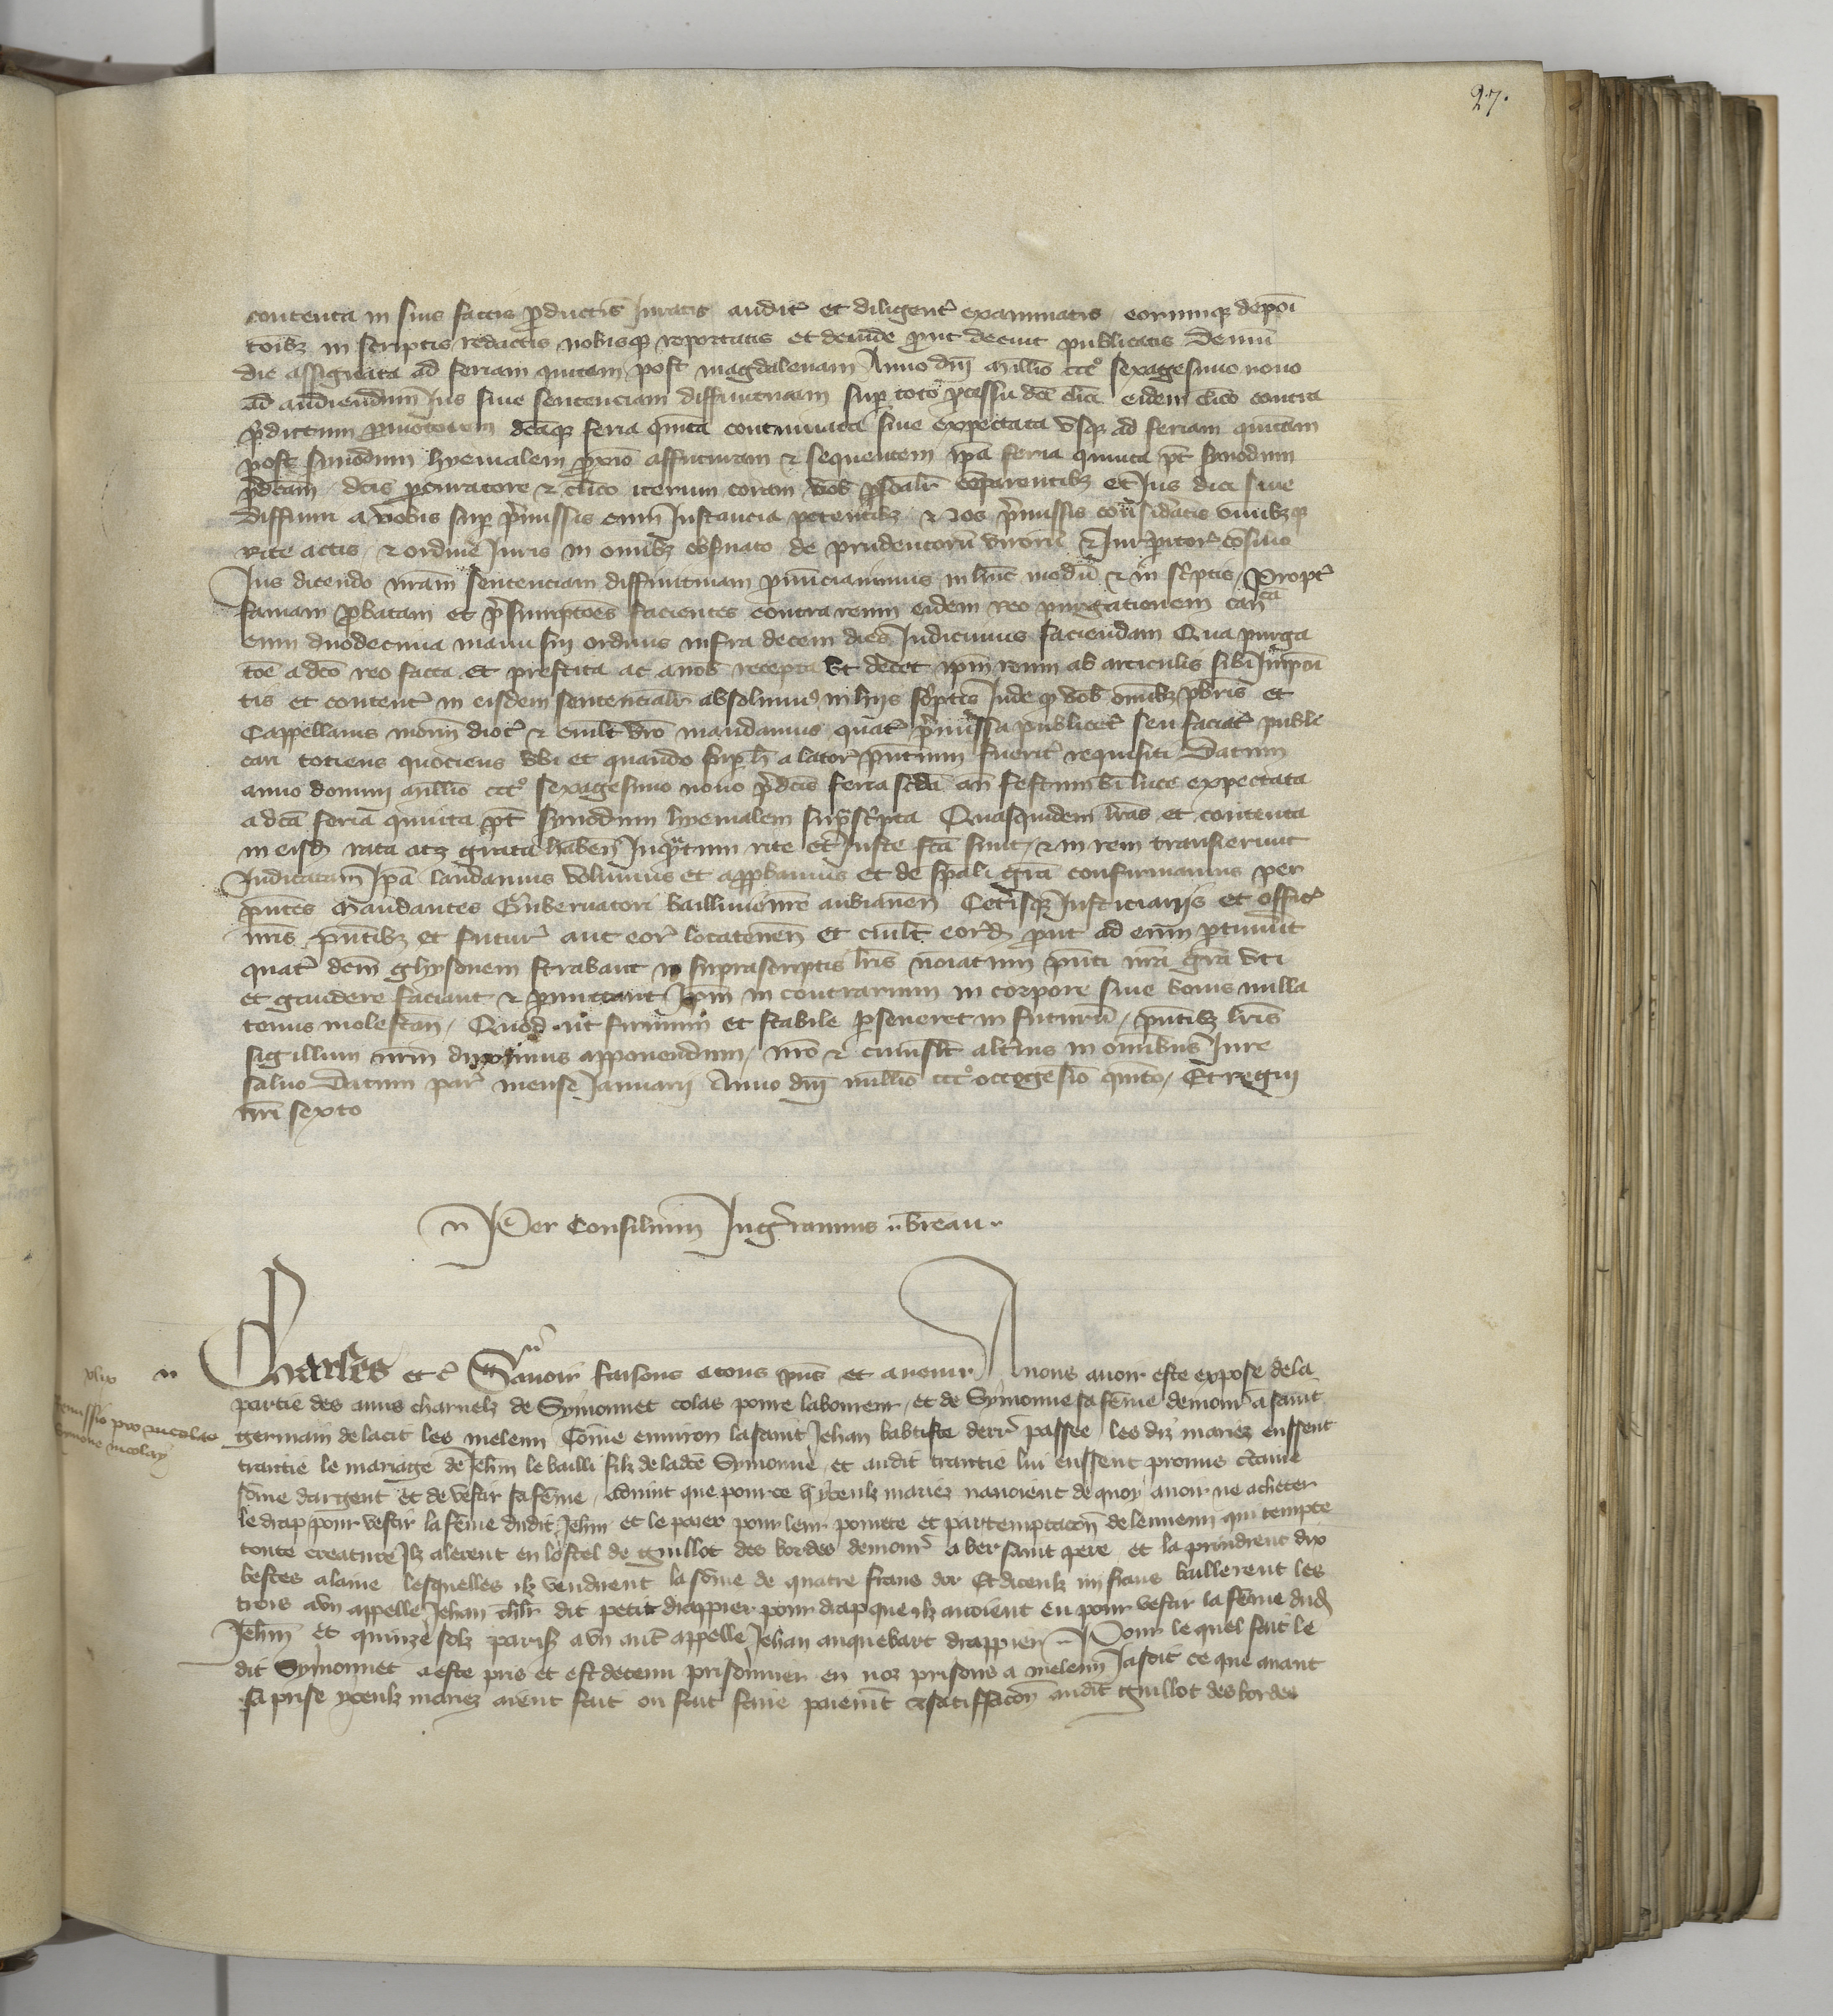 27.
contenta in suis factis productis Juratis audit̾ et diligent̾ examinatis eorumq; depoı̄
toībz in scriptis redactis nobisq; reportatis et deinde prout decuit publicatis Demū
die assignata ad feriam quintam post magdalenam Anno dn̄i millīo ccc° sexagesimo nono
ad audiendum Jus sine sentenciam diffinitiuam sup toto p̄cessu dc̄e cāe eidem cl̄ico contra
p̄dictum promotorem dc̄aq; feria quīta continuata siue expectata vsq; ad feriam quintam
post sinodum hyemalem p̄xīo affuturam & sequentem ip̄a feria quinta pt̄ synodum
p̄dc̄am dc̄is p̄curatore & cl̄ico iterum coram nob̄ p̄sonal̄r cōparentibz et Jus dici siue
diffiniri a nobis sup p̄missis cum Jnstancia petentibz & nos p̄missis consideratis omībzq;
rite actis & ordine Juris in omībz obseruato de prudentorū virorū & Jurisp̄itor̄ cōsilio
Jus dicendo nr̄am sentenciam diffinitiuam pronunciauimus in hūc modū & in sc̄ptis / Propt̾
famam p̄batam et p̄sumptōes facientes contra reum eidem reo purgationem can̄cā
cum duodecima manu sui ordinis infra decem dies Judicimus faciendam Qua purga
tōe a dc̄o reo facta et prestita ac a nob̄ recepta vt decet ip̄m reum ab articulis sibi Jmposi
tis et content̾ in eisdem sentencial̄r absoluim̄ in hijs sc̄ptis Jnde q; vob̄ omībz p̄bris et
Cappellanis nr̄am dioc̾ & cuil̄t vr̄o mandamus quat̾ p̄missa publicet̾ seu faciat̾ publi
cari totiens quociens vbi et quando sup h̄ a lator̄ p̄ntium fuerit̾ requisiti Datum
anno domini millīo ccc° sexagesimo nono p̄dc̄is feria sc̄da an̄ festum bī luce expectata
a dc̄a feria quinta pt̄ synodum hyemalem sup̄sc̄pta Quasquidem lr̄as et contenta
in eisd̄ rata atz grata haben̄ Jnq̄ntum rite et Juste fc̄a sunt & in rem transierunt
Judicatam Jpā laudamus volumus et app̄bamus et de sp̄ali grā confirmamus per
p̄ntes Mandantes Gubernatori bailliuie nr̄e ambianen̄ Cet̾isq; Justiciarijs et offic̾
nr̄is p̄ntibz et futur̄ aut eor̄ locatenen̄ et cuil̄t eord̄ prout ad eum p̄tinuit
quat̾ dc̄m ghysonem strabant in suprascriptis lr̄is noīatum p̄nti nr̄a grā vti
et gaudere faciant & p̄mittant Jp̄m in contrarium in corpore siue bonis nulla
tenus molestan̄ / Quod ut firmum et stabile p̄seueret in futurū / p̄ntibz lr̄is
sigillum nr̄m duximus apponendum / nr̄o & cuiusl̄t alt̾ius in omībus Jure
saluo Datum par̄ mense Januarij Anno dn̄i millīo ccc° octogesīo quīto / Et regni
nr̄i sexto
Per Consilium Jngerannus .. breau ..
Charles et c̾ Sauoir faisons a tous p̄ns et auenir A nous auoir este expose de la
partie des amis charnelz de Symonnet colas poure laboureur / et de Symonne sa fēme demour̄ a saint
xliiij
Remissio pro nicolao
Symone nicolay
germain de lacit les meleun Cōme enuiron la saint Jehan babtiste derr̄ passee les diz mariez eussent
traictie le mariage de Jeh̄n le bailli filz de ladc̄e Symonne / et audit traictie lui eussent promis c̄taine
sōme dargent et de vestir sa fēme / Aduint que pour ce q̄ yceulz mariez nauoient de quoy auoir ne acheter
le drap pour vestir la fēme dudit Jeh̄n et le paier pour leur pourete et par temptacōn de lennemi qui tempte
toute creature Jlz alerent en lostel de guillot des bordes demour̄ a ber saint pere et la prindrent dix
bestes a laine lesquelles ilz vendirent la sōme de quatre frans dor Et diceulz iiij frans baillerent les
trois a vn appelle Jehan ch̄lr dit petit drappier pour drap que ilz auoient eu pour vestir la fēme dud̄
Jeh̄n et quinze solz paris̄ a vn aut̄ appelle Jehan auquebart drappier .. Pour le quel fait le
dit Symonnet a este pris et est detenu prisonnier en noz prisons a meleun Jasoit ce que auant
sa prise yceulz mariez aient fait ou fait faire paiem̄t & satiffacōn audit guillot des bordes